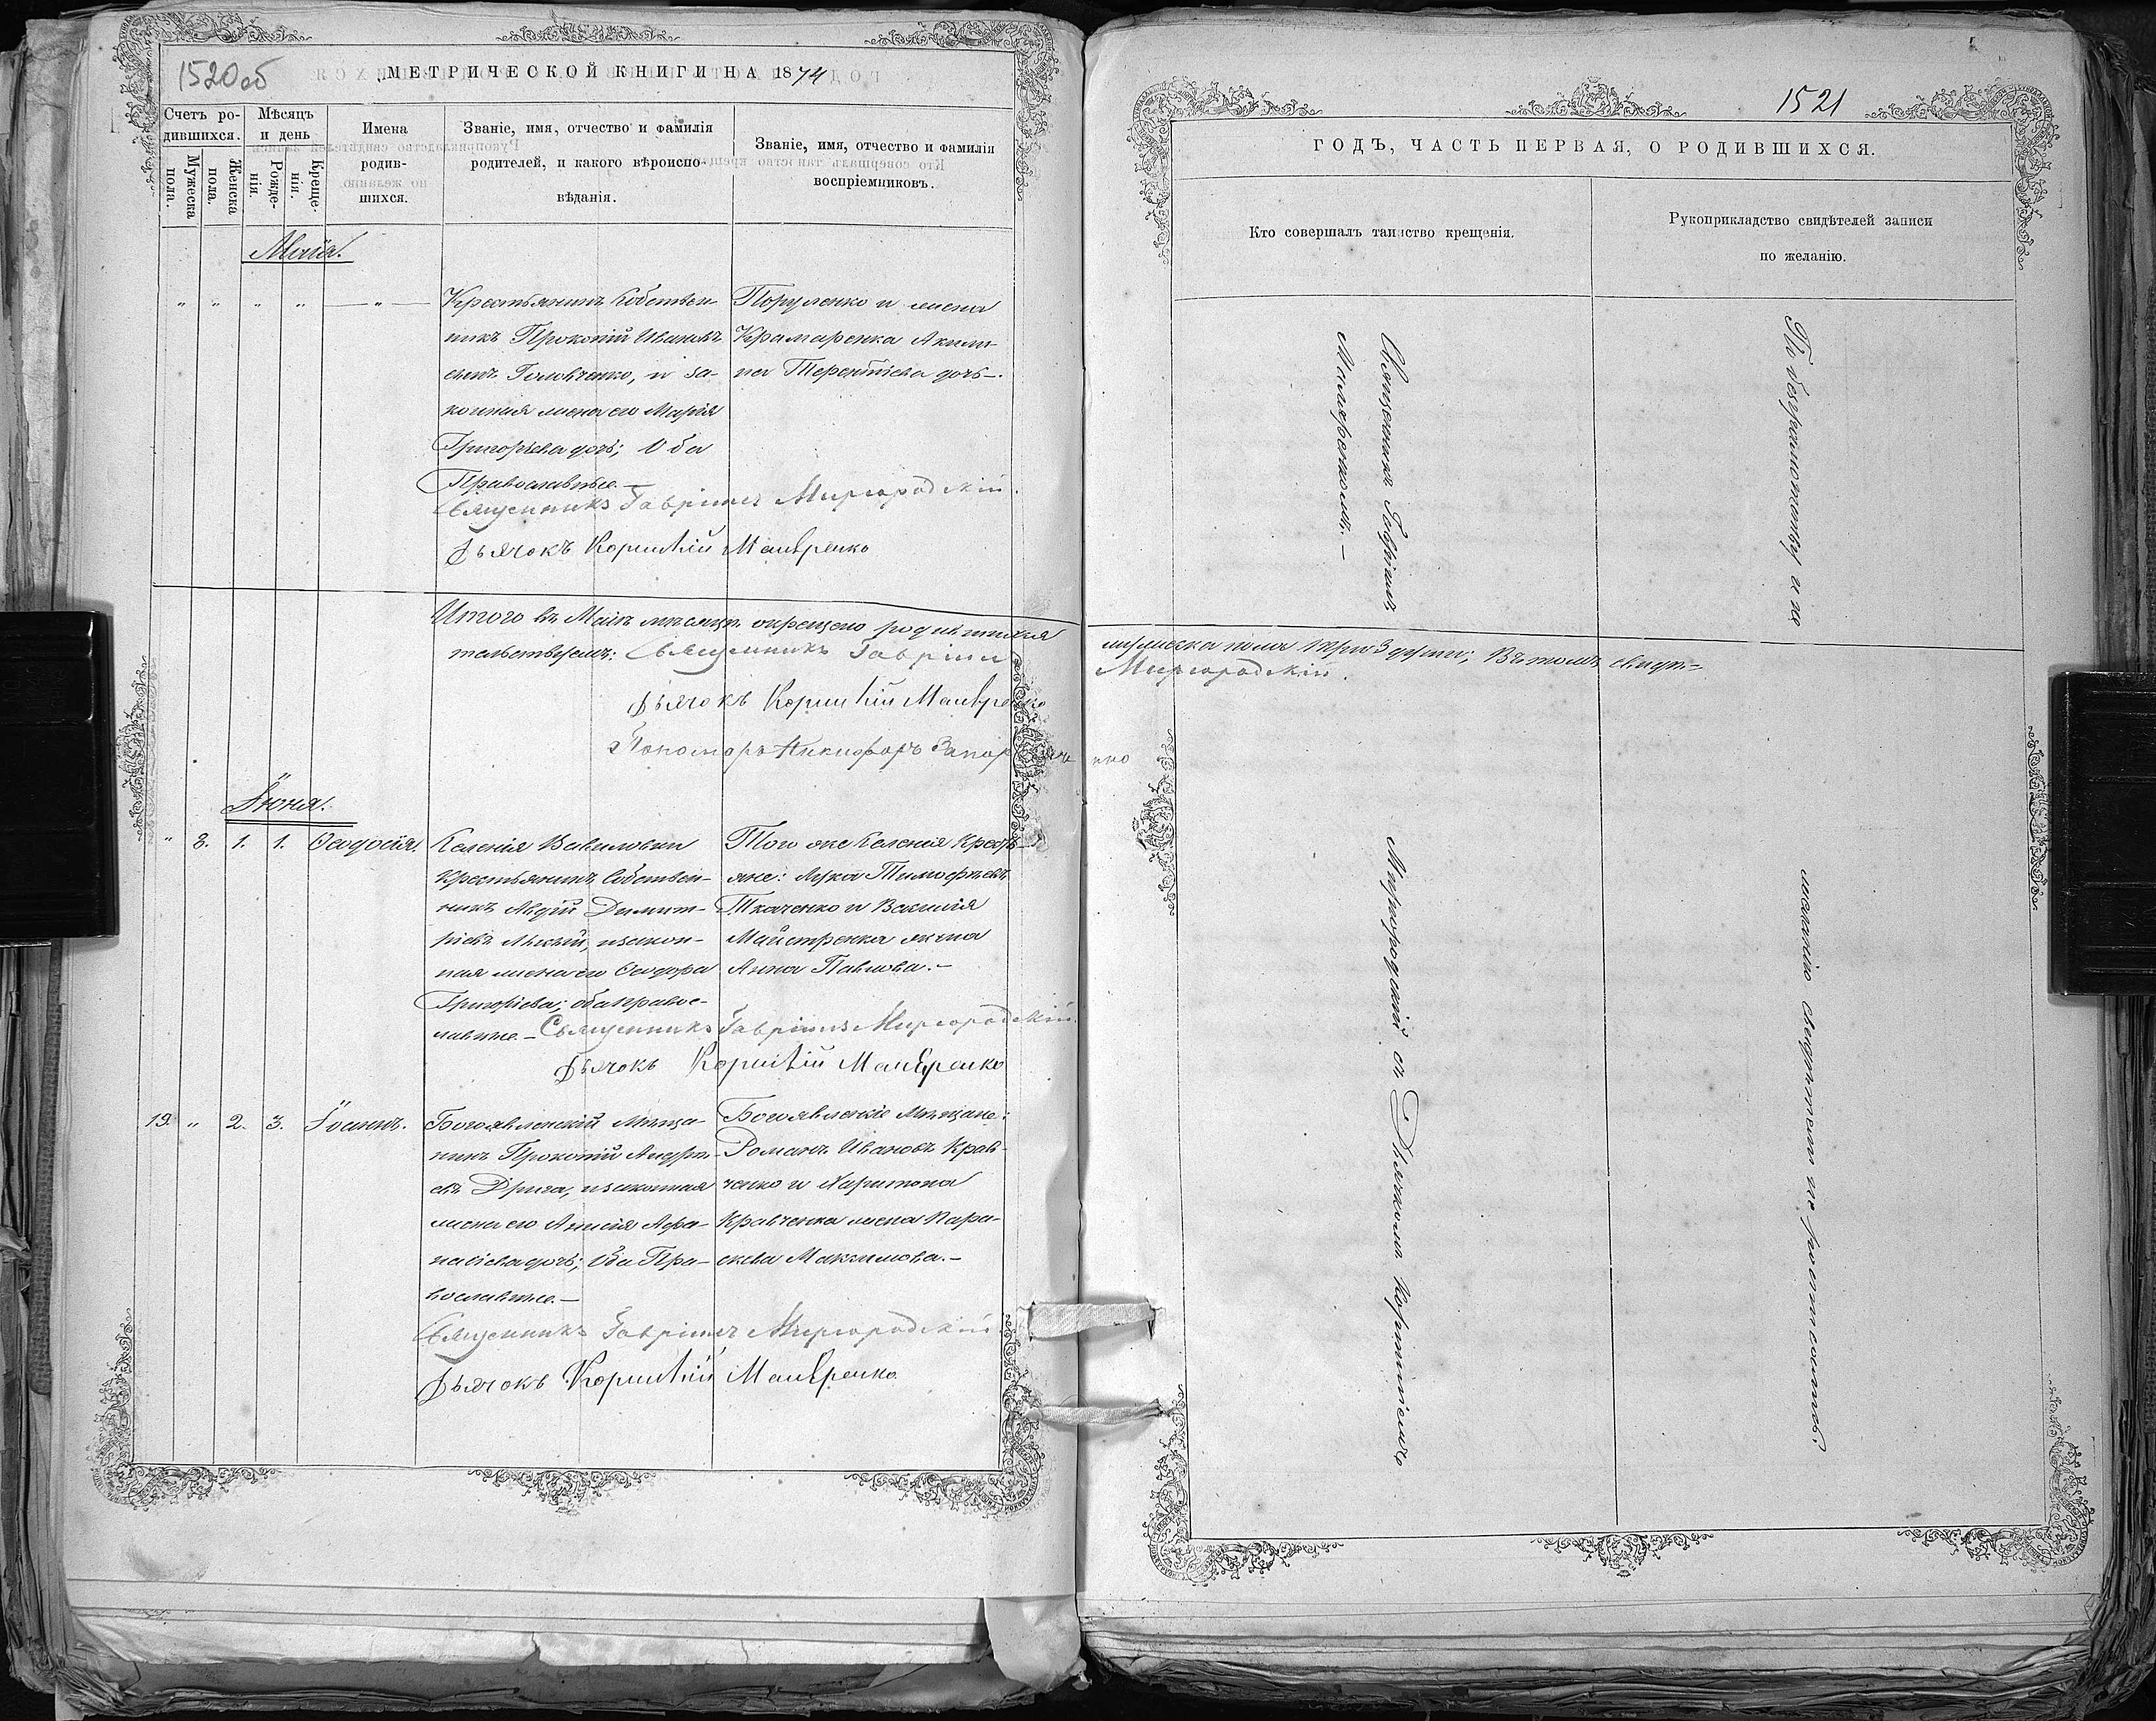 1520 об
МЕТРИЧЕСКОЙ КНИГИ НА 1874
Счетъ ро-
дившихся.
Мужеска
пола.
Женска
пола.
Мѣсяцъ
и день
Рожде-
нія.
Креще-
нія.
Имена
родив-
шихся.
Званіе, имя, отчество и фамилія
родителей, и какого вѣроиспо-
вѣданія.
Званіе, имя, отчество и фамилія
воспріемниковъ.
Мая.
„ „ „ „ — „ —
Крестьянинъ Собствен-
никъ Прокопій Ивановъ
сынъ Головченко, и за-
конная жена его Марія
Григорьева дочь; Оба
Православные.—
и жена
Крамаренка Акили-
на Терентіева дочь.—
Священникъ Гавріилъ Миргородскій.
Дьячокъ
Итого въ Маѣ мѣсяцѣ окрещено родившихся
тельствуемъ: Священникъ Гавріилъ
Дьячокъ
Пономарь Никифоръ
Іюня.
„ 8. 1. 1. Ѳеодосія.
Селенія Вавиловки
Крестьянинъ Собствен-
никъ Авдій Димит-
ріевъ и закон-
ная жена его Ѳеодора
Григоріева; оба Правос-
лавные.—
Того же Селенія Кресть-
яне: Лука Тимофѣевъ
Ткаченко и Василія
Майстренка жена
Анна Павлова.—
Священникъ Гавріилъ Миргородскій.
Дьячокъ
19. „ 2. 3. Іоаннъ.
Богоявленскій Мѣща-
нинъ Прокопій Андрѣ-
евъ Дрига, и законная
жена его Анисія Афа-
насіева дочь; Оба Пра-
вославные.—
Богоявленскіе Мѣщане:
Романъ Ивановъ Крав-
ченко и Харитона
Кравченка жена Пара-
скева Максимова.—
Священникъ Гавріилъ Миргородскій.
Дьячокъ
1521
ГОДЪ, ЧАСТЬ ПЕРВАЯ, О РОДИВШИХСЯ.
Кто совершалъ таинство крещенія.
Рукоприкладство свидѣтелей записи
по желанію.
Священникъ Гавріилъ
По безграмотству и не
мужеска пола три 3 души; Въ томъ свидѣ-
Миргородскій.
Миргородскій съ Дьячкомъ
желанію свидѣтели не росписались.